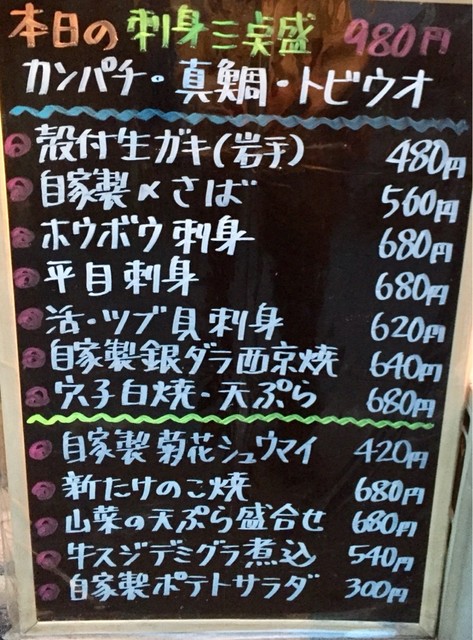 本日の刺身三点盛 980円
カンパチ・真鯛・トビウオ
殻付生ガキ(岩手) 480円
自家製〆さば 560円
ホウボウ刺身 680円
平目刺身 680円
活・ツブ貝刺身 620円
自家製銀ダラ西京焼 640円
穴子白焼・天ぷら 680円
自家製菊花シュウマイ 420円
新たけのこ焼 680円
山菜の天ぷら盛合せ 680円
牛スジデミグラ煮込 540円
自家製ポテトサラダ 300円